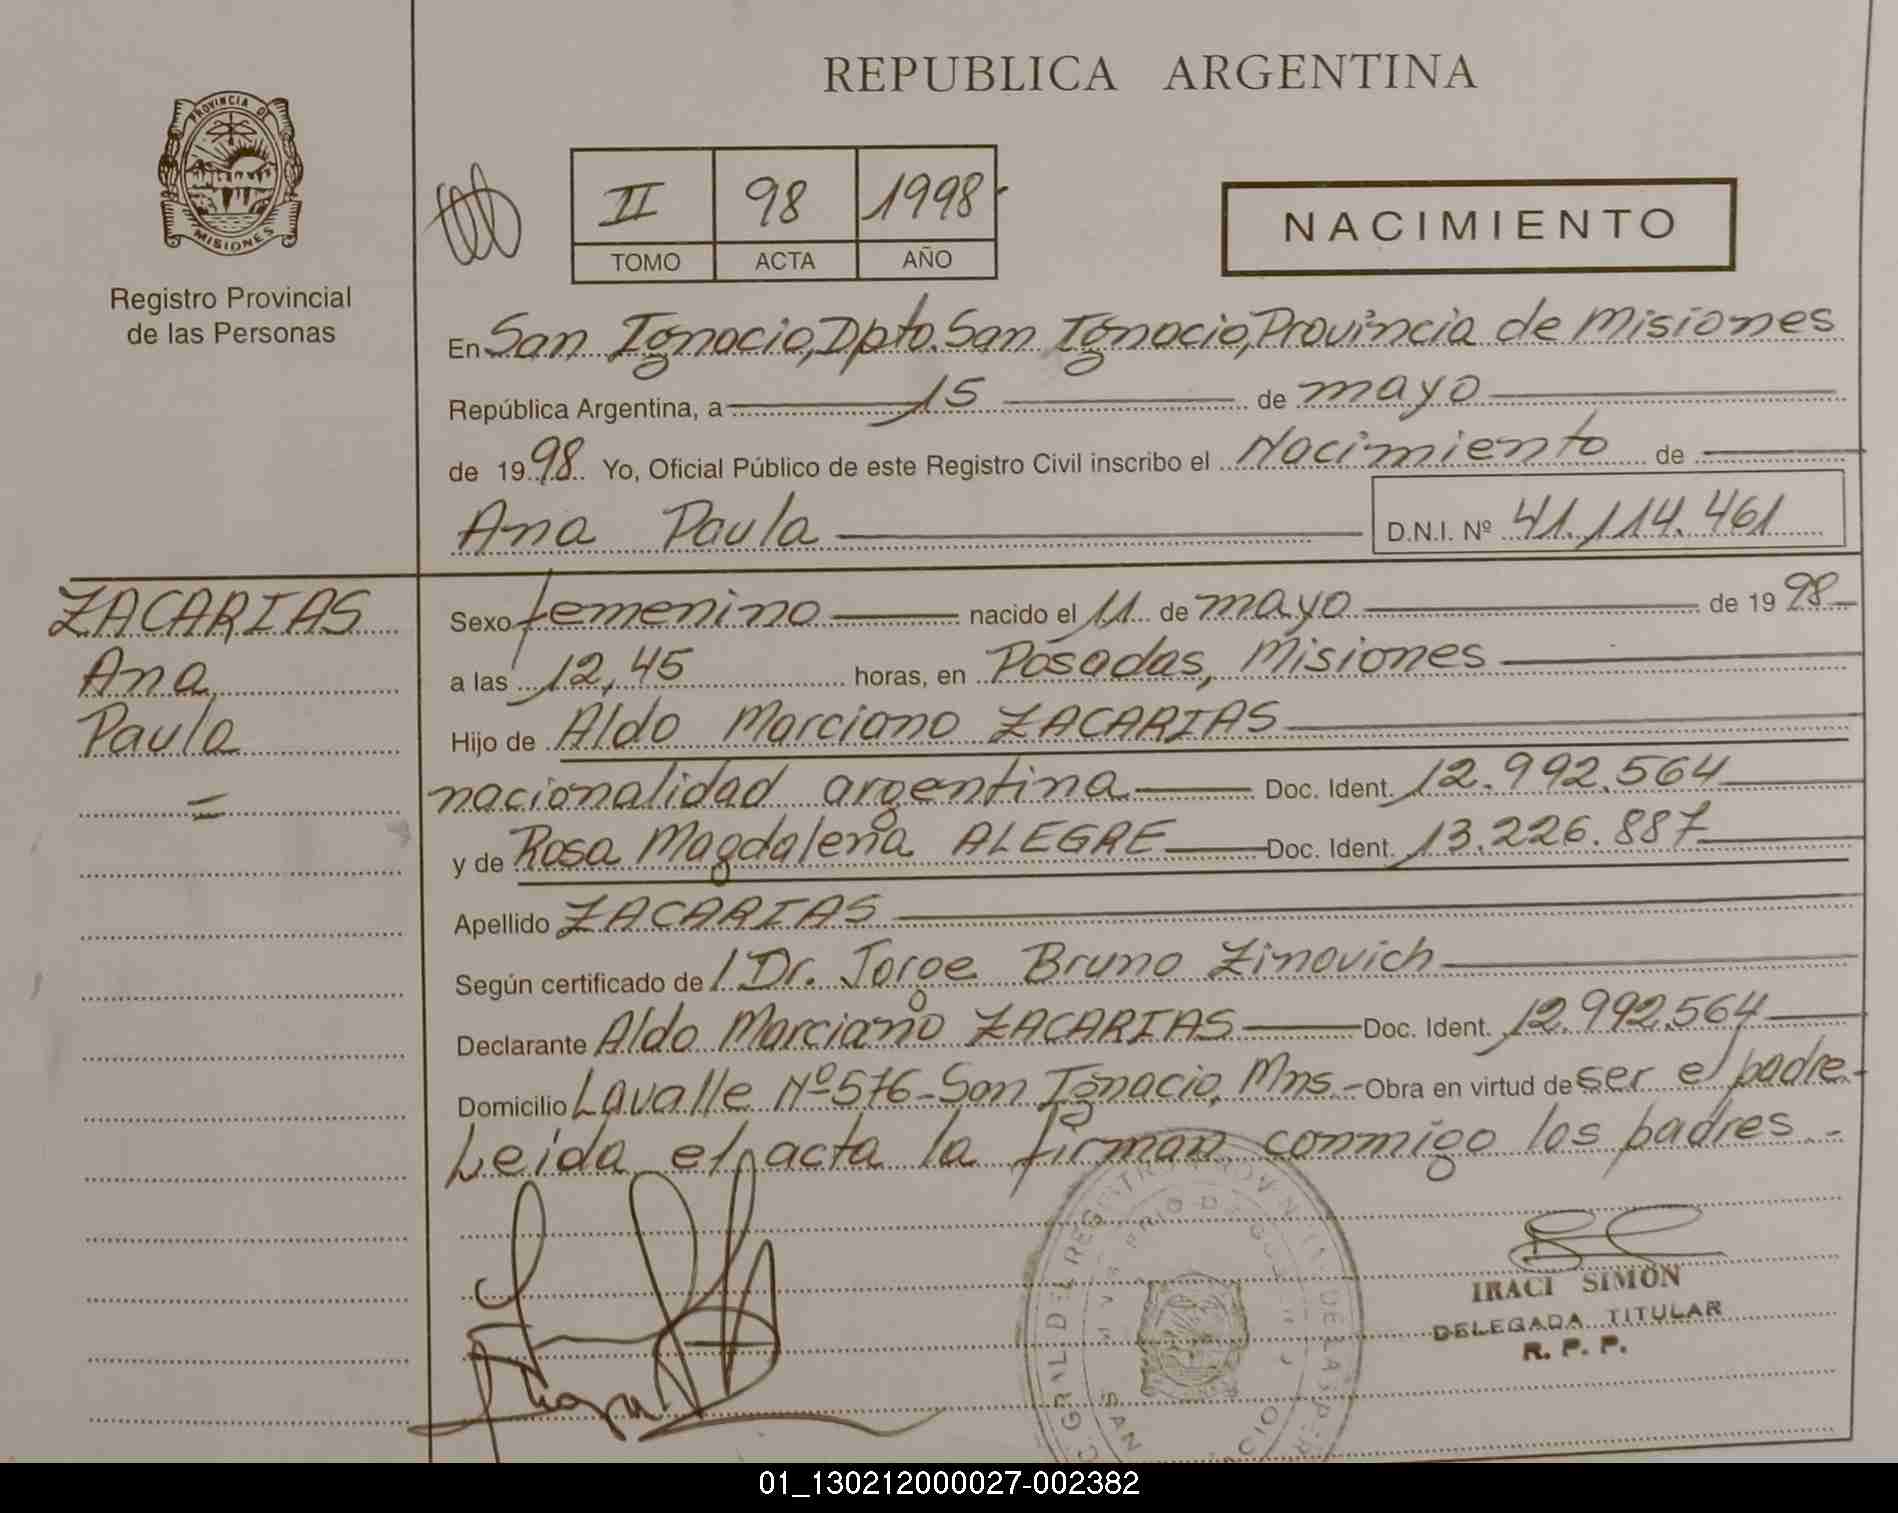 REPUBLICA ARGENTINA
PROVINCIA DE
MISIONES
Registro Provincial
de las Personas
II 98 1998
TOMO ACTA AÑO
NACIMIENTO
En San Ignacio, Dpto. San Ignacio, Provincia de Misiones
República Argentina, a 15 de mayo
de 1998 Yo, Oficial Público de este Registro Civil inscribo el Nacimiento de
Ana Paula D.N.I. Nº 41.114.461
ZACARIAS
Ana
Paula
Sexo femenino nacido el 11 de mayo de 1998
a las 12,45 horas, en Posadas, Misiones
Hijo de Aldo Marciano ZACARIAS
nacionalidad argentina Doc. Ident. 12.992.564
y de Rosa Magdalena ALEGRE Doc. Ident. 13.226.887
Apellido ZACARIAS
Según certificado de / Dr. Jorge Bruno Zinovich
Declarante Aldo Marciano ZACARIAS Doc. Ident. 12.992.564
Domicilio Lavalle Nº 576 - San Ignacio, Mns.- Obra en virtud de ser el padre.-
Leída el acta la firman conmigo los padres.-
IRACI SIMÓN
DELEGADA TITULAR
R. P. P.
01_130212000027-002382